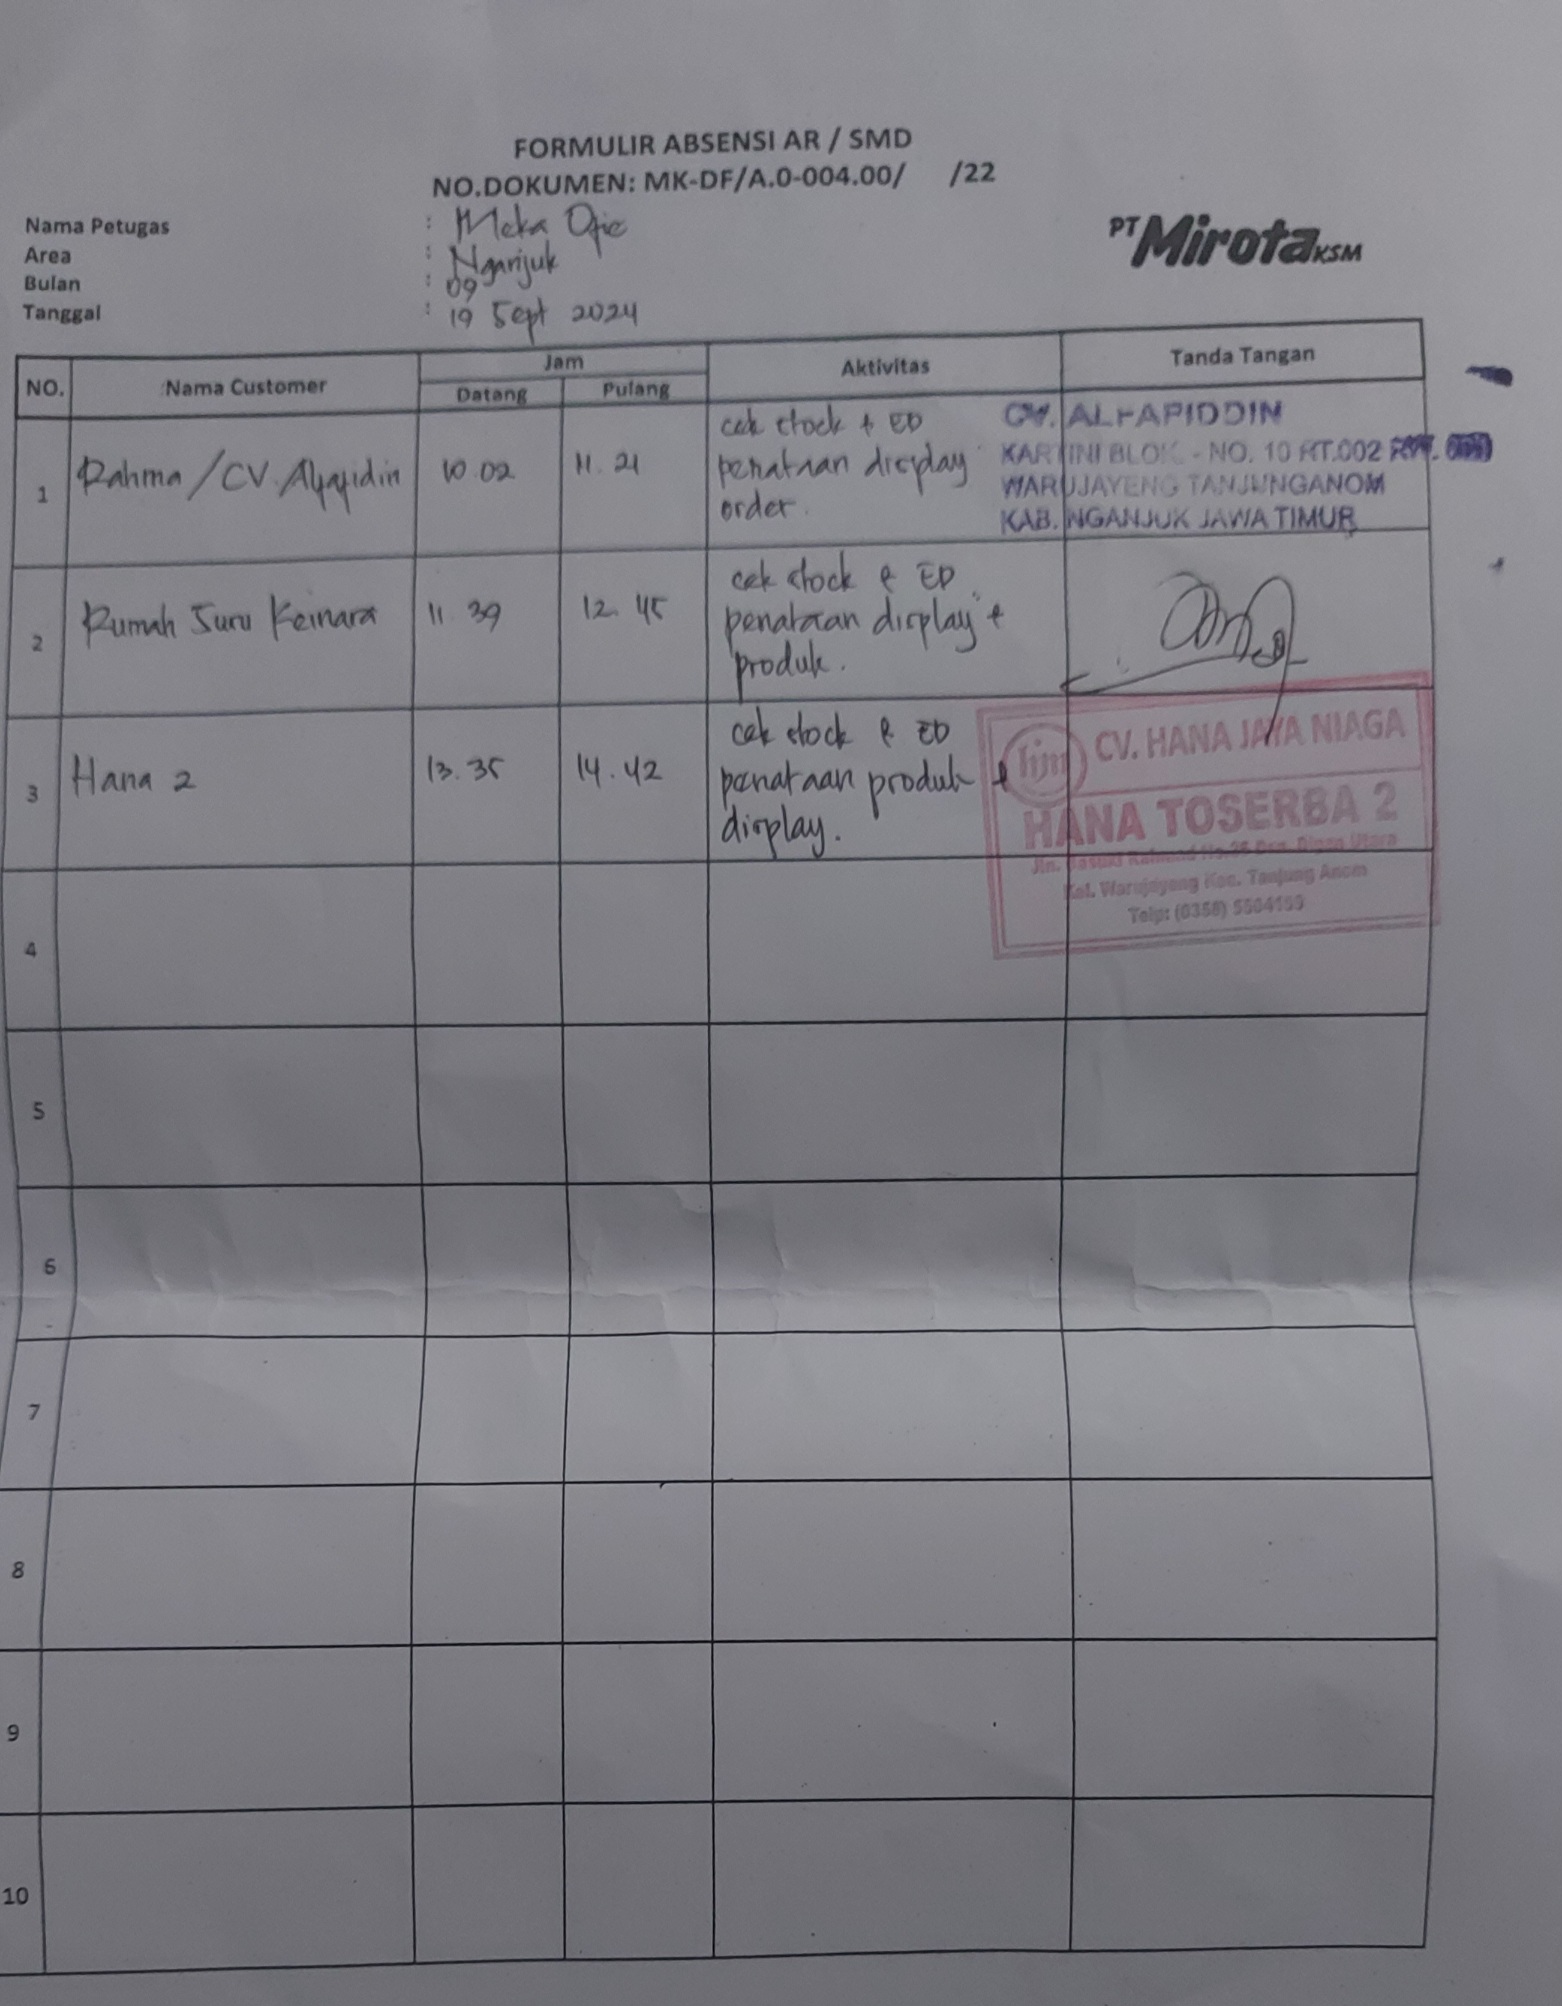 FORMULIR ABSENSI AR / SMD
NO.DOKUMEN: MK-DF/A.0-004.00/ /22
Nama Petugas : Meka Ofie
Area : Nganjuk
Bulan : 09
Tanggal : 19 Sept 2024
PT Mirota KSM
NO. Nama Customer Jam Aktivitas Tanda Tangan
Datang Pulang
1 Rahma / CV. Alfafidin 10.02 11.21
cek stock & ED
penataan display
order.
CV. ALFAPIDDIN
KARTINI BLOK - NO. 10 RT.002
WARUJAYENG TANJUNGANOM
KAB. NGANJUK JAWA TIMUR
2 Rumah Susu Keinara 11.39 12.45
cek stock & ED
penataan display &
produk.
3 Hana 2 13.35 14.42
cek stock & ED
penataan produk &
display.
hjn CV. HANA JAYA NIAGA
HANA TOSERBA 2
Jln. Basuki Rahmad No.
Kel. Warujayeng Kec. Tanjung Anom
Telp: (0358)
4
5
6
7
8
9
10